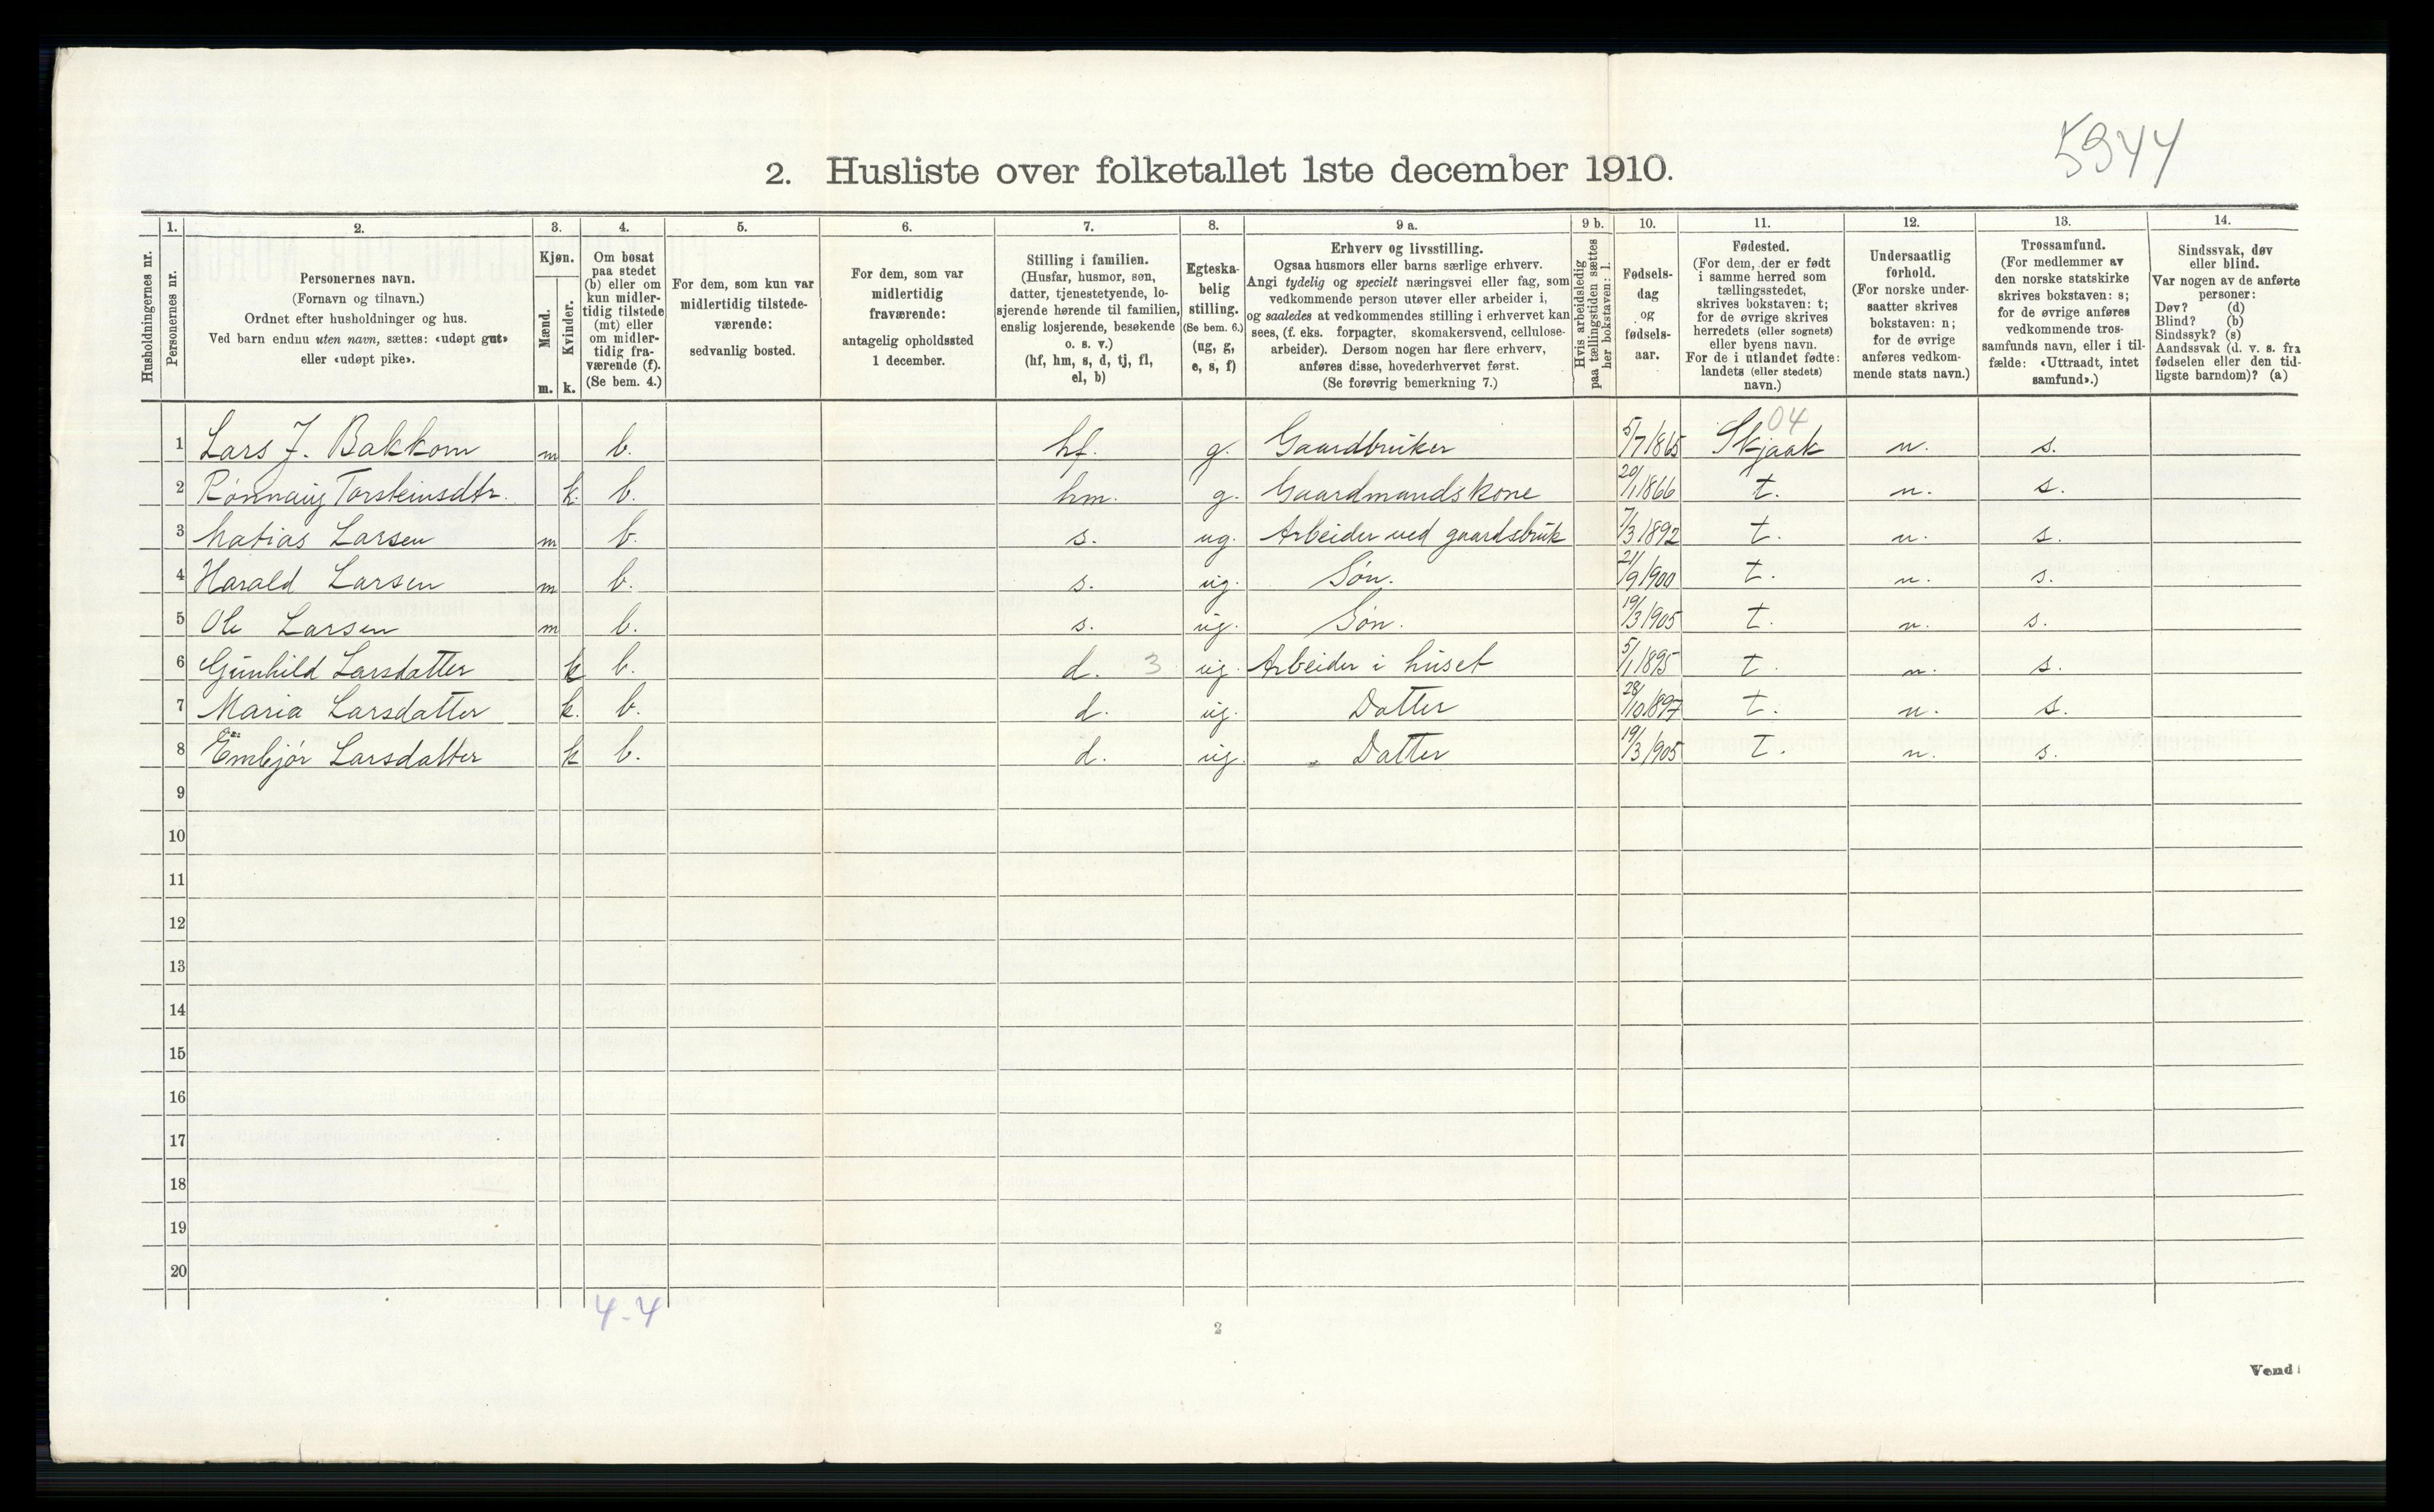 5944
2. Husliste over folketallet 1ste december 1910.
Husholdningernes nr.
1. Personernes nr.
2. Personernes navn. (Fornavn og tilnavn.) Ordnet efter husholdninger og hus. Ved barn endnu uten navn, sættes: «udøpt gut» eller «udøpt pike».
3. Kjøn. Mænd. m. Kvinder. k.
4. Om bosat paa stedet (b) eller om kun midlertidig tilstede (mt) eller om midlertidig fraværende (f). (Se bem. 4.)
5. For dem, som kun var midlertidig tilstedeværende: sedvanlig bosted.
6. For dem, som var midlertidig fraværende: antagelig opholdssted 1 december.
7. Stilling i familien. (Husfar, husmor, søn, datter, tjenestetyende, losjerende hørende til familien, enslig losjerende, besøkende o. s. v.) (hf, hm, s, d, tj, fl, el, b)
8. Egteskabelig stilling. (Se bem. 6.) (ug, g, e, s, f)
9 a. Erhverv og livsstilling. Ogsaa husmors eller barns særlige erhverv. Angi tydelig og specielt næringsvei eller fag, som vedkommende person utøver eller arbeider i, og saaledes at vedkommendes stilling i erhvervet kan sees, (f. eks. forpagter, skomakersvend, cellulosearbeider). Dersom nogen har flere erhverv, anføres disse, hovederhvervet først. (Se forøvrig bemerkning 7.)
9 b. Hvis arbeidsledig paa tællingstiden sættes her bokstaven: l.
10. Fødselsdag og fødselsaar.
11. Fødested. (For dem, der er født i samme herred som tællingsstedet, skrives bokstaven: t; for de øvrige skrives herredets (eller sognets) eller byens navn. For de i utlandet fødte: landets (eller stedets) navn.)
12. Undersaatlig forhold. (For norske undersaatter skrives bokstaven: n; for de øvrige anføres vedkommende stats navn.)
13. Trossamfund. (For medlemmer av den norske statskirke skrives bokstaven: s; for de øvrige anføres vedkommende trossamfunds navn, eller i tilfælde: «Uttraadt, intet samfund».)
14. Sindssvak, døv eller blind. Var nogen av de anførte personer: Døv? (d) Blind? (b) Sindssyk? (s) Aandssvak (d. v. s. fra fødselen eller den tidligste barndom)? (a)
04
1 Lars J. Bakkom m b. hf. g. Gaardbruker 5/7 1865 Skjaak n. s.
2 Rønnaug Torsteinsdtr. k. b. hm. g. Gaardmandskone 20/1 1866 t. n. s.
3 Matias Larsen m b. s. ug. Arbeider ved gaardsbruk 7/3 1892 t. n. s.
4 Harald Larsen m b. s. ug. Søn. 21/9 1900 t. n. s.
5 Ole Larsen m b. s. ug. Søn. 19/3 1905 t. n. s.
6 Gunhild Larsdatter k b. d. 3 ug. Arbeider i huset 5/1 1895 t n. s.
7 Maria Larsdatter k. b. d. ug. Datter 28/10 1897 t. n. s.
8 Embjør Larsdatter k b. d. ug. Datter 19/3 1905 t. n. s.
9
10
11
12
13
14
15
16
17
18
19
20
4-4
2
Vend!